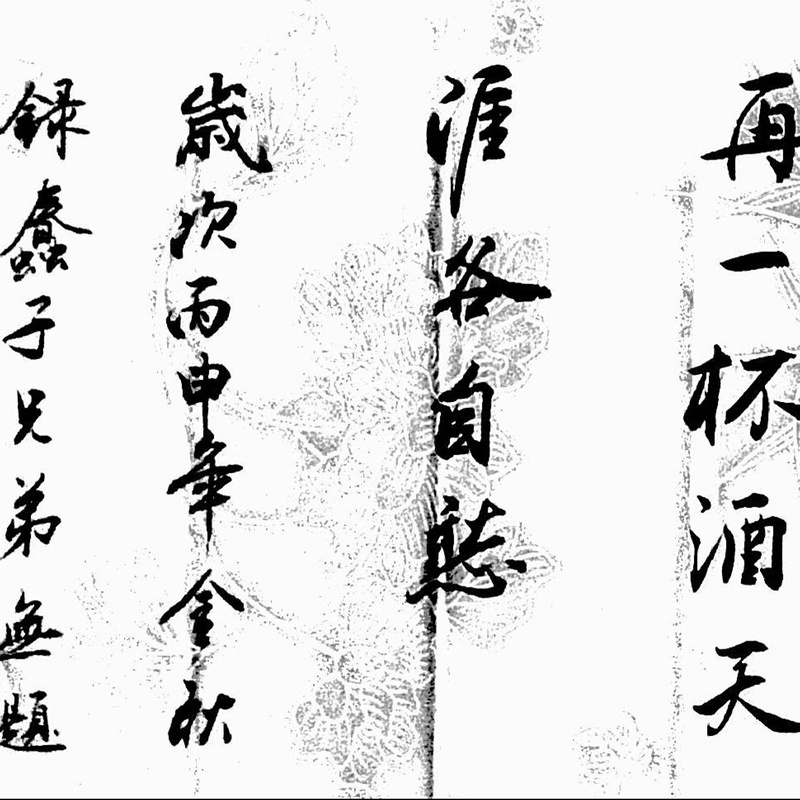 再一杯酒天
涯各自愁
歲次丙申年金秋
録蠢子兄弟無題